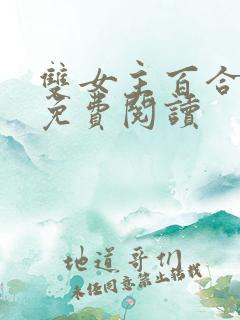 雙女主百合
免費閱讀
地道哥们
未经同意禁止转载